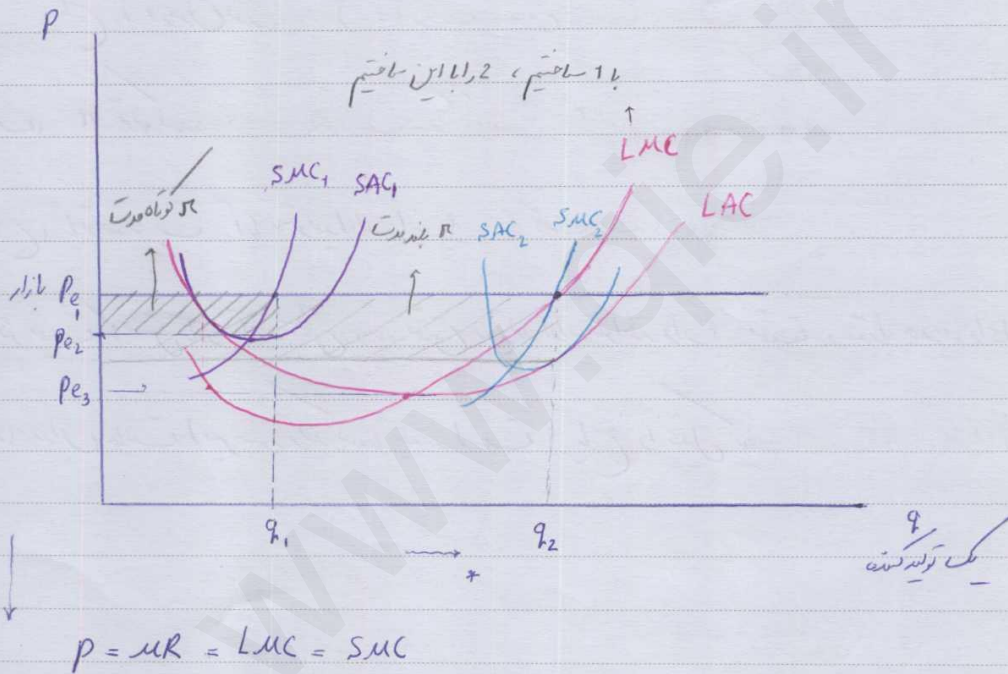 P
با 1 ساختیم، 2 را با این ساختیم
LMC
SMC₁
SAC₁
LAC
π کوتاه مدت
π بلند مدت
SAC₂
SMC₂
بازار Pe₁
Pe₂
Pe₃
q₁
q₂
q
*
یک تولید کننده
P = MR = LMC = SMC
www.qie.ir